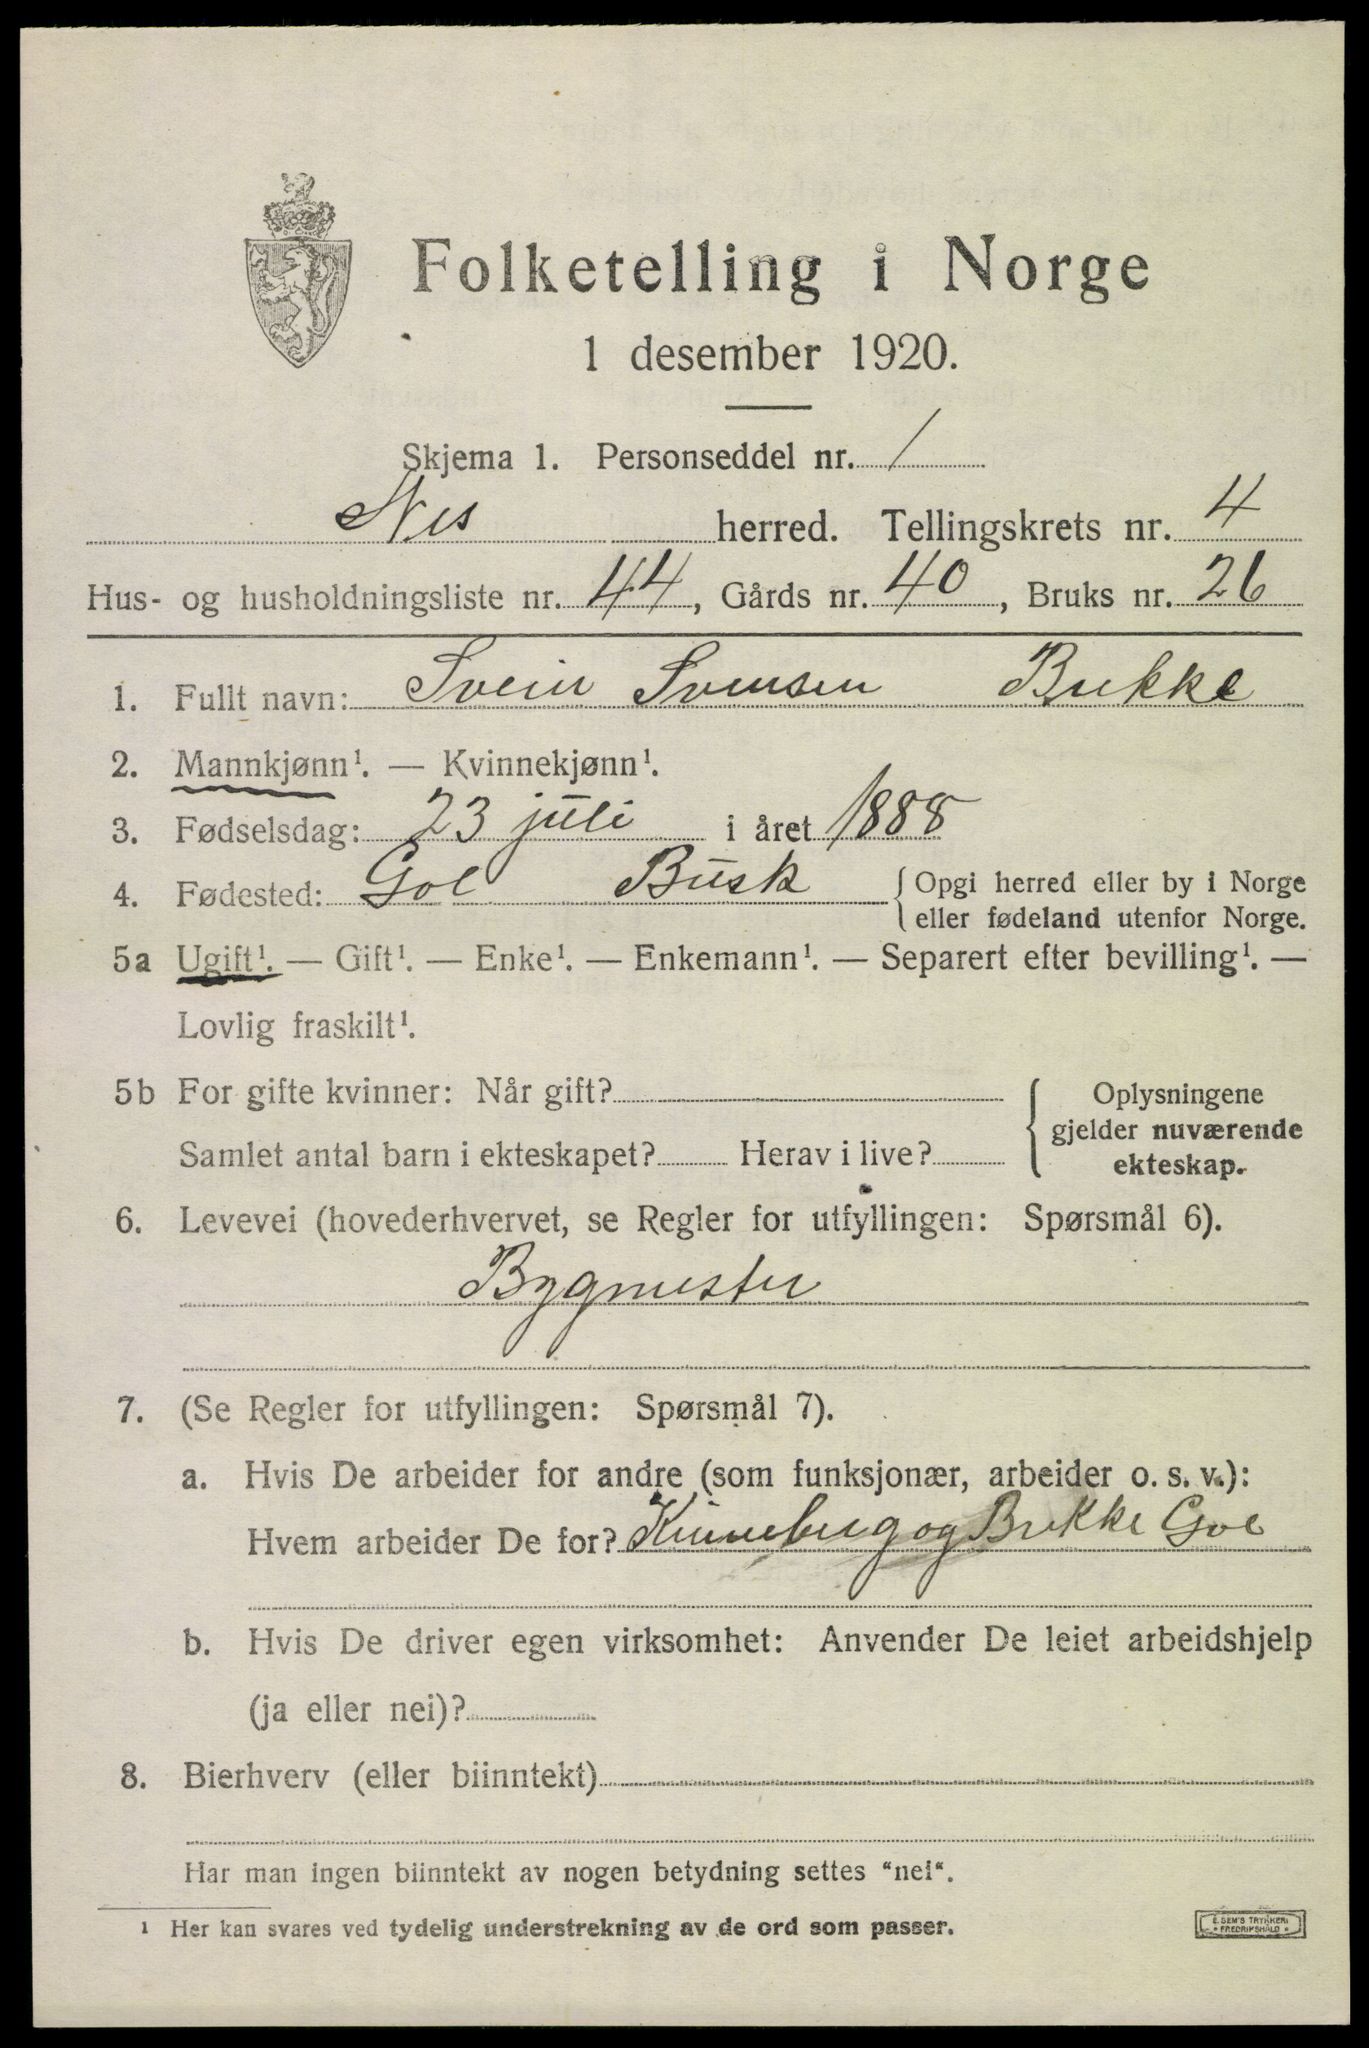 Folketelling i Norge
1 desember 1920.
Skjema 1. Personseddel nr. 1
Nes herred. Tellingskrets nr. 4
Hus- og husholdningsliste nr. 44, Gårds nr. 40, Bruks nr. 26
1. Fullt navn: Svein Svensen Brekke
2. Mannkjønn¹. — Kvinnekjønn¹.
3. Fødselsdag: 23 juli i året 1888
4. Fødested: Gol Busk { Opgi herred eller by i Norge
eller fødeland utenfor Norge.
5a Ugift¹. — Gift¹. — Enke¹. — Enkemann¹. — Separert efter bevilling¹. —
Lovlig fraskilt¹.
5b For gifte kvinner: Når gift?
Samlet antal barn i ekteskapet? Herav i live?
Oplysningene
gjelder nuværende
ekteskap.
6. Levevei (hovederhvervet, se Regler for utfyllingen: Spørsmål 6).
Bygmester
7. (Se Regler for utfyllingen: Spørsmål 7).
a. Hvis De arbeider for andre (som funksjonær, arbeider o. s. v.):
Hvem arbeider De for? Kinneberg og Brekke Gol
b. Hvis De driver egen virksomhet: Anvender De leiet arbeidshjelp
(ja eller nei)?
8. Bierhverv (eller biinntekt)
Har man ingen biinntekt av nogen betydning settes "nei".
¹ Her kan svares ved tydelig understrekning av de ord som passer.
E. SEM'S TRYKKERI
* FREDRIKSHALD *